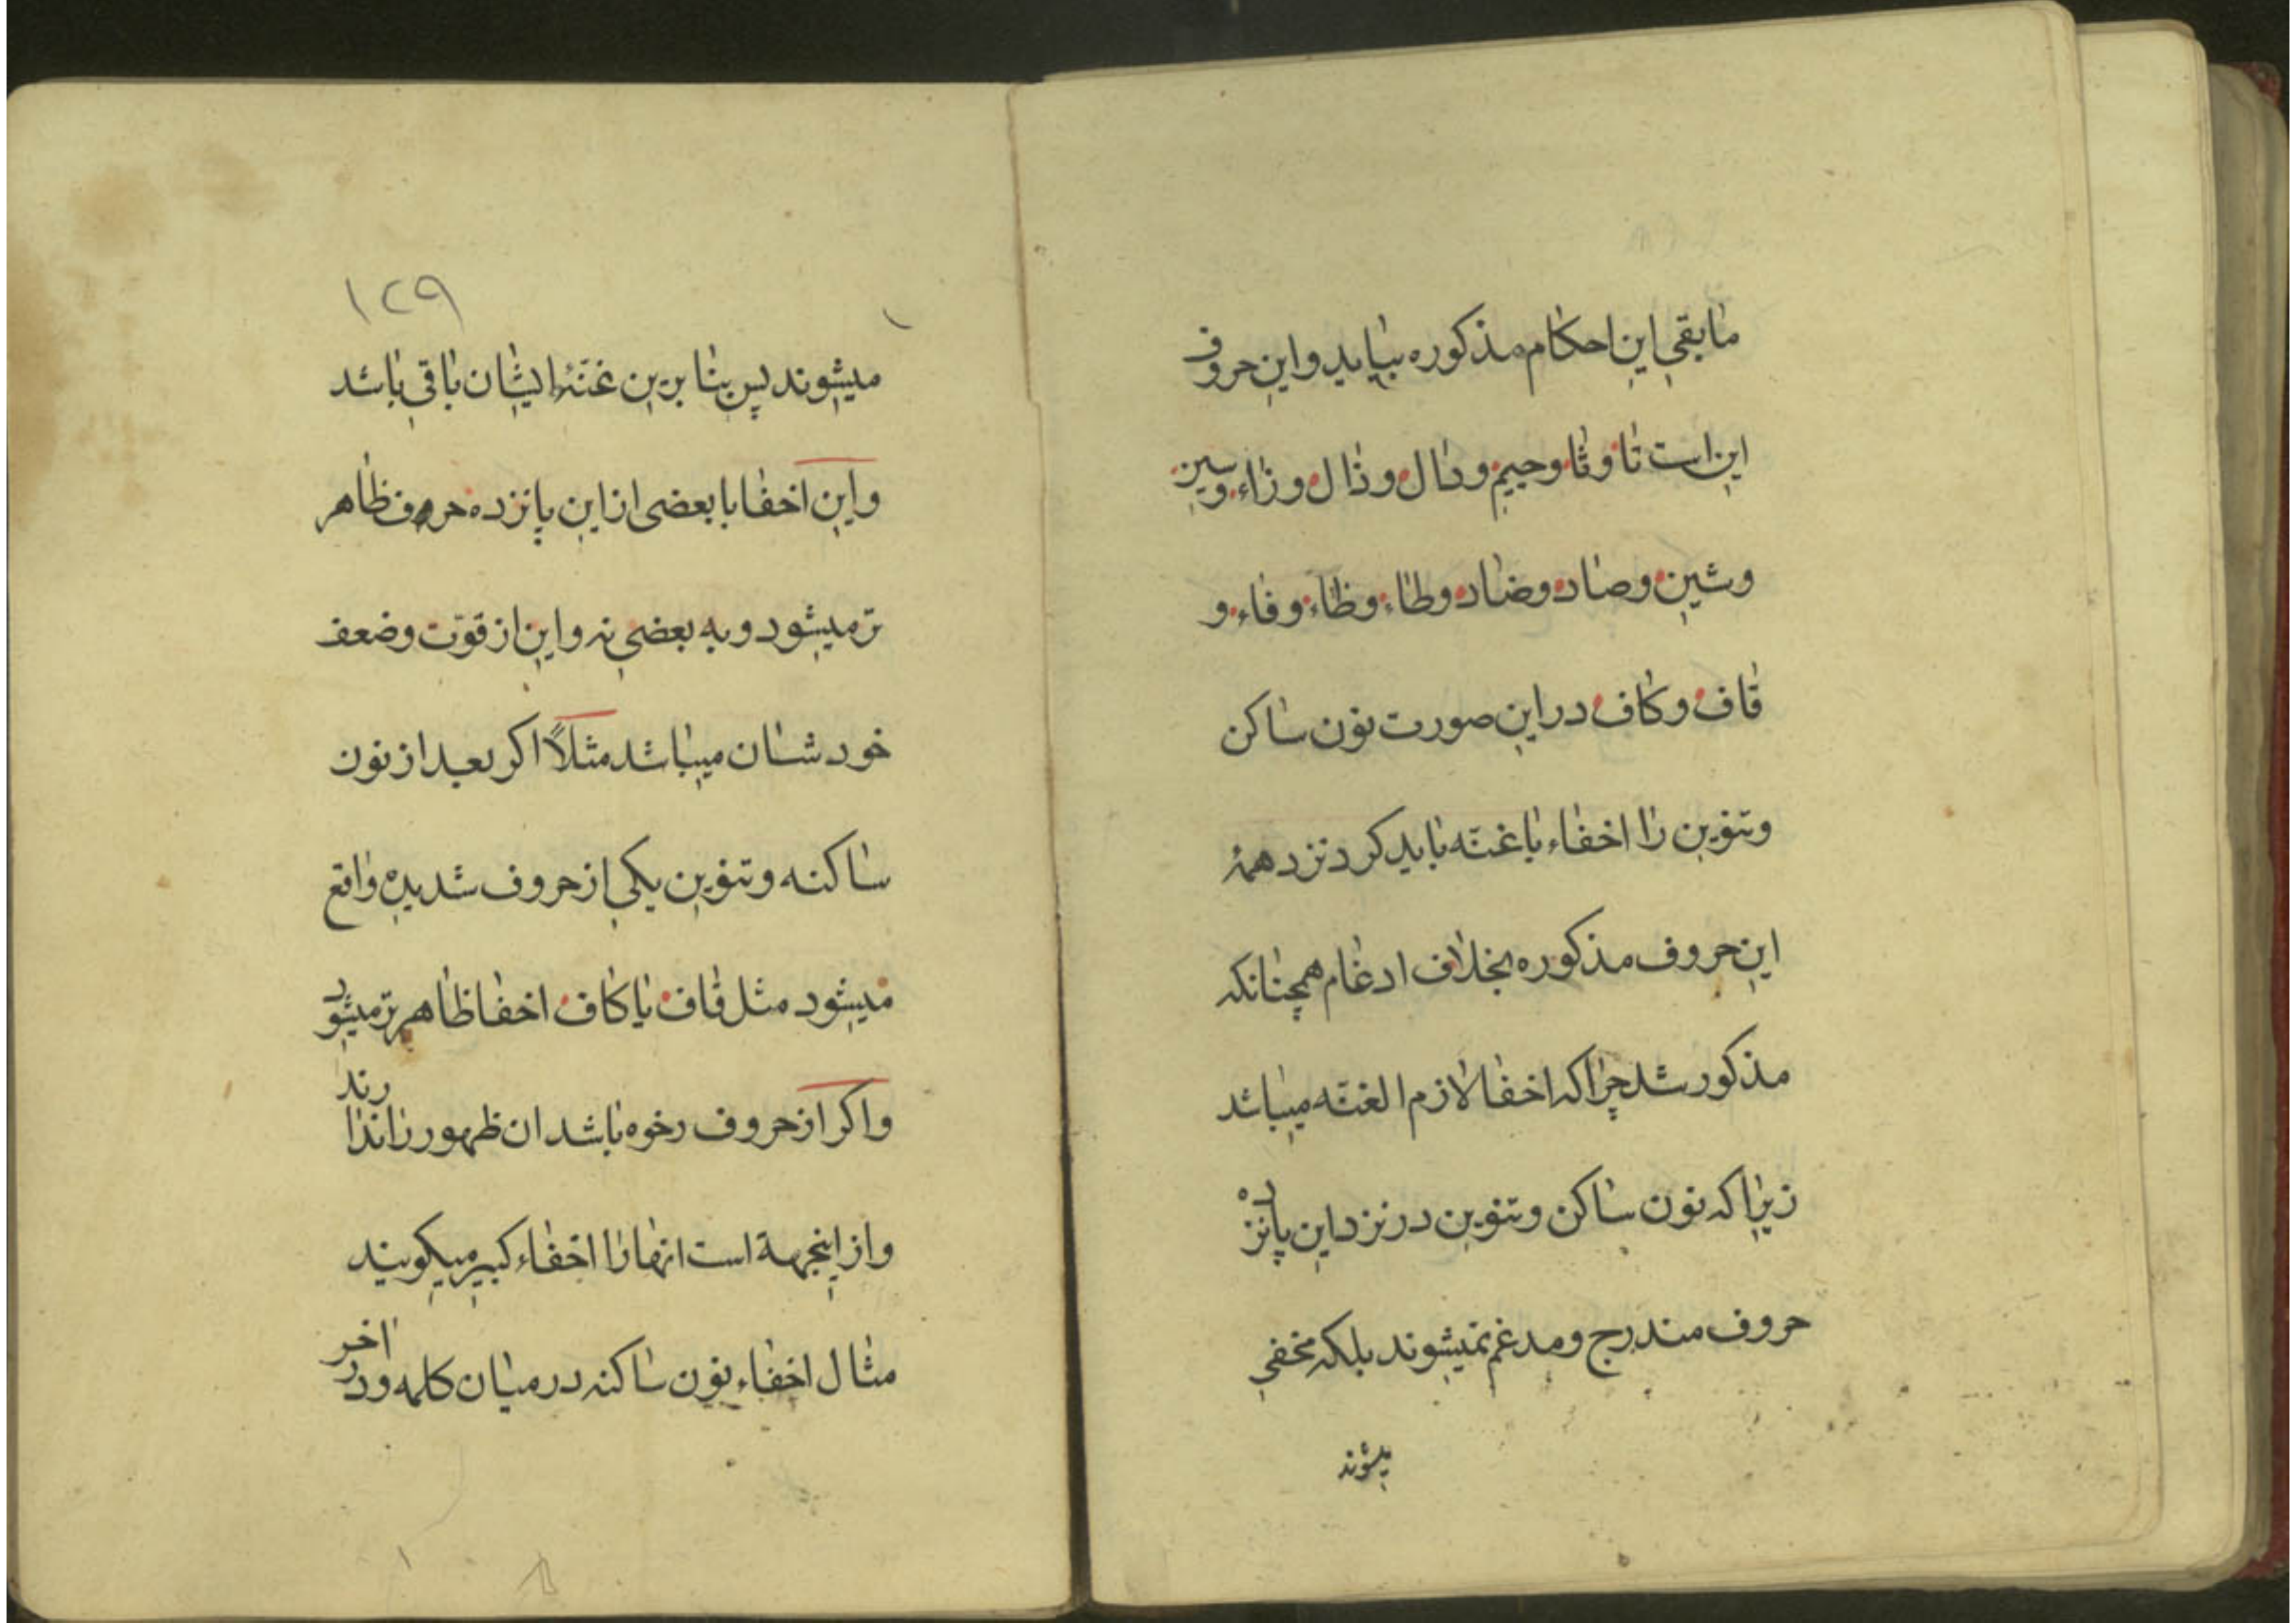 مابقی این احکام مذکوره بیاید و این حروف
این است تا و ثا و جیم و دال و ذال و زاء و سین
و شین و صاد و ضاد و طاء و ظاء و فاء و
قاف و کاف در این صورت نون ساکن
و تنوین را اخفاء با غنّه باید کرد نزد همهٔ
این حروف مذکوره بخلاف ادغام همچنانکه
مذکور شد چرا که اخفا لازم الغنّه میباشد
زیرا که نون ساکن و تنوین در نزد این پانزده
حروف مندرج و مدغم نمیشوند بلکه مخفی
میشوند
١٢٩
میشوند پس بنا برین غنّهٔ ایشان باقی باشد
و این اخفا با بعضی از این پانزده حروف ظاهر
تر میشود و به بعضی نه و این از قوّت و ضعف
خودشان میباشد مثلاً اکر بعد از نون
ساکنه و تنوین یکی از حروف شدیده واقع
میشود مثل قاف یا کاف اخفا ظاهرتر میشود
و اکر از حروف رخوه باشد ان ظهور را ندارند
و از اینجهة است انها را اخفاء کبیر میکویند
مثال اخفاء نون ساکنه در میان کلمه و در اخر